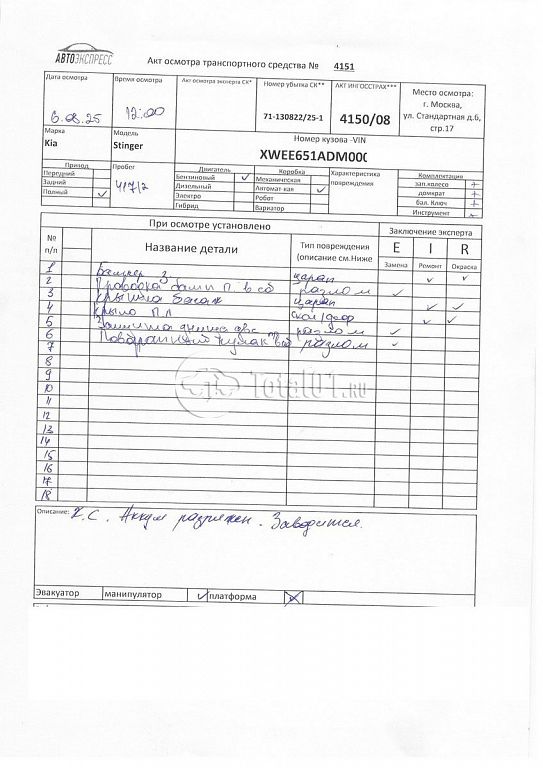 АВТОЭКСПРЕСС
Акт осмотра транспортного средства № 4151
Дата осмотра
6.08.25
Время осмотра
12:00
Акт осмотра эксперта СК*
Номер убытка СК**
71-130822/25-1
АКТ ИНГОССТРАХ***
4150/08
Место осмотра:
г. Москва,
ул. Стандартная д.6,
стр.17
Марка
Kia
Модель
Stinger
Номер кузова -VIN
XWEE651ADM000
Привод
Передний
Задний
Полный ✓
Пробег
Двигатель
Бензиновый ✓
Дизельный
Электро
Гибрид
Коробка
Механическая
Автомат-кая ✓
Робот
Вариатор
Характеристика
повреждения
Комплектация
зап.колесо +
домкрат +
бал. Ключ +
Инструмент +
При осмотре установлено
Заключение эксперта
№
п/п
Название детали
Тип повреждения
(описание см.Ниже
E I R
Замена Ремонт Окраска
1 Бампер З царап ✓ ✓
2 п. в сб разлом ✓
3 Крышка багаж царап ✓ ✓
4 Крыло П.Л ✓ ✓
5 Защита двс разлом ✓
6 Поворотный кулак разлом ✓
7
8
9
10
11
12
13
14
15
16
17
18
Total01.RU
Описание: К.С. Аккум разряжен. Заводится.
Эвакуатор манипулятор ✓ платформа